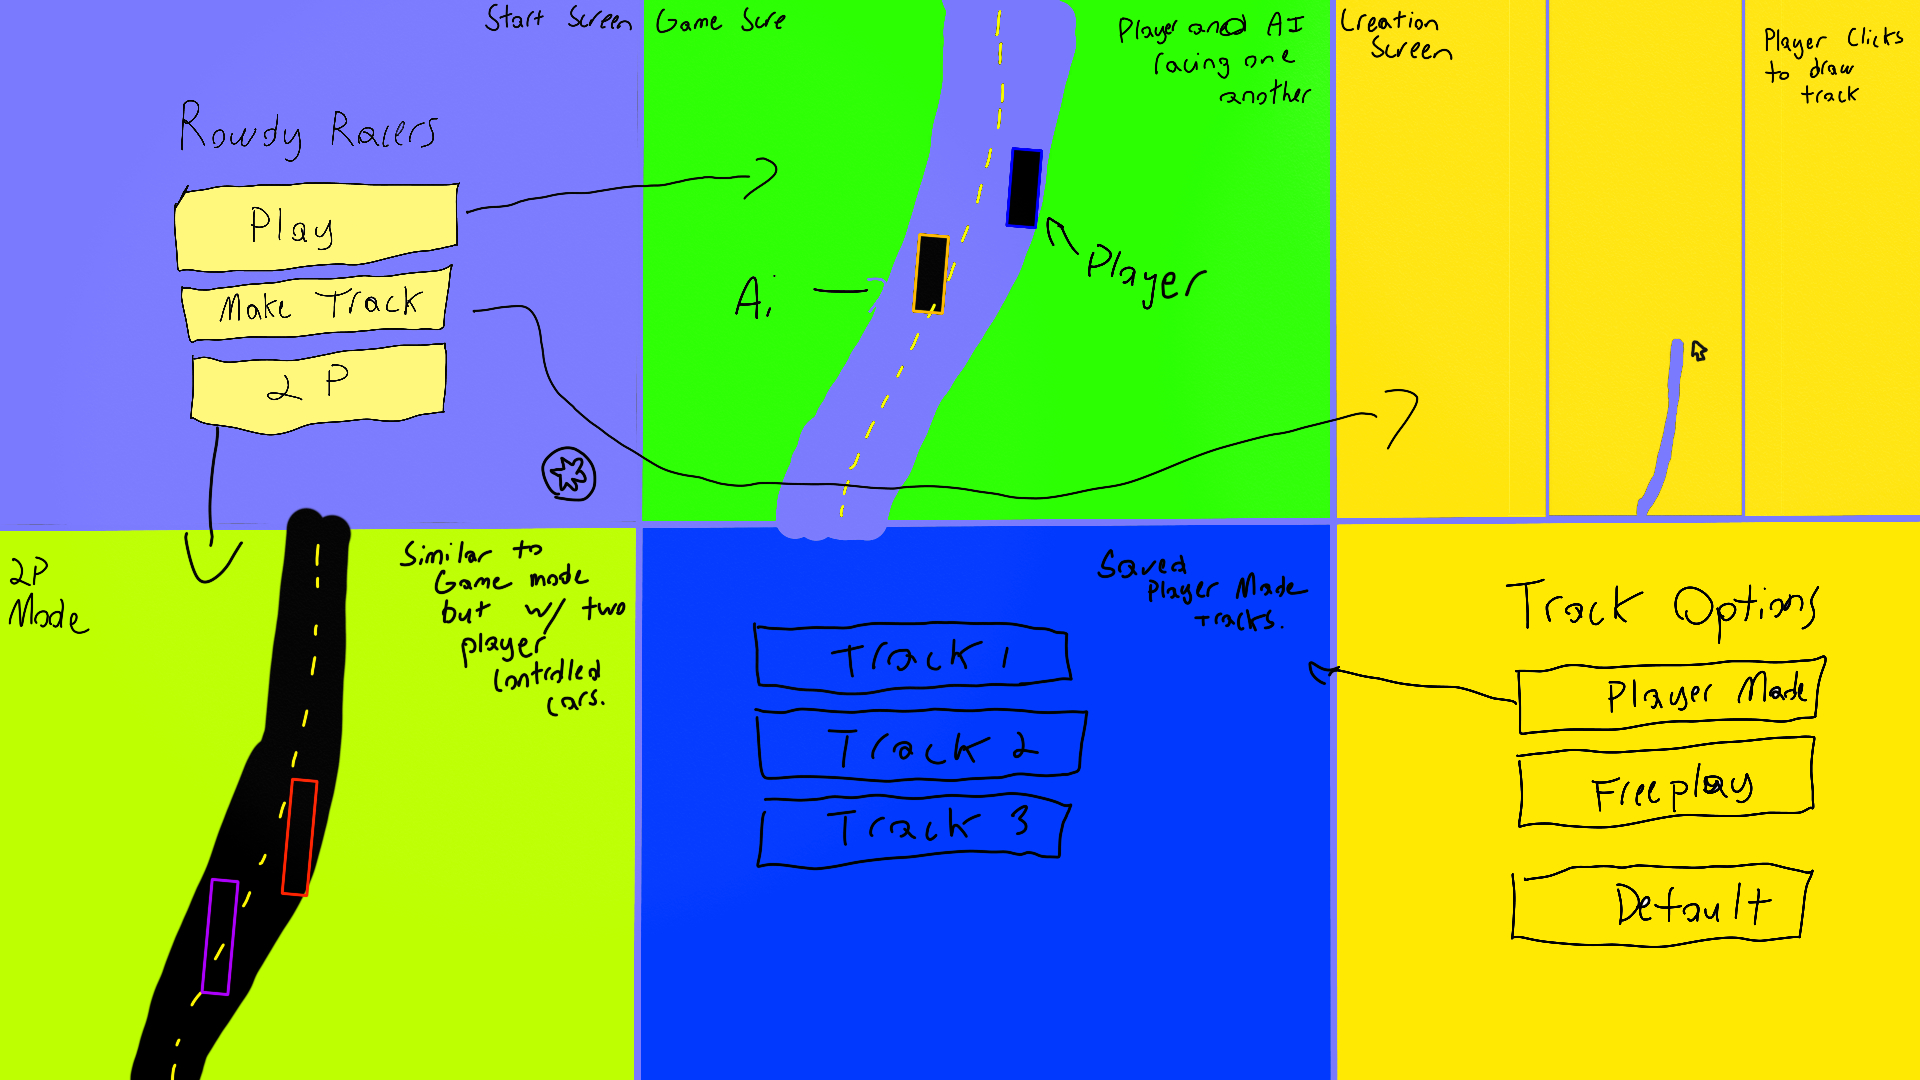 Start Screen
Rowdy Racers
Play
Make Track
2 P
Game Scre
Player and AI
racing one
another
Player
Ai
Creation
Screen
Player Clicks
to draw
track
2P
Mode
Similar to
Game mode
but w/ two
player
controlled
cars.
Saved
Player Made
tracks.
Track 1
Track 2
Track 3
Track Options
Player Made
Freeplay
Default